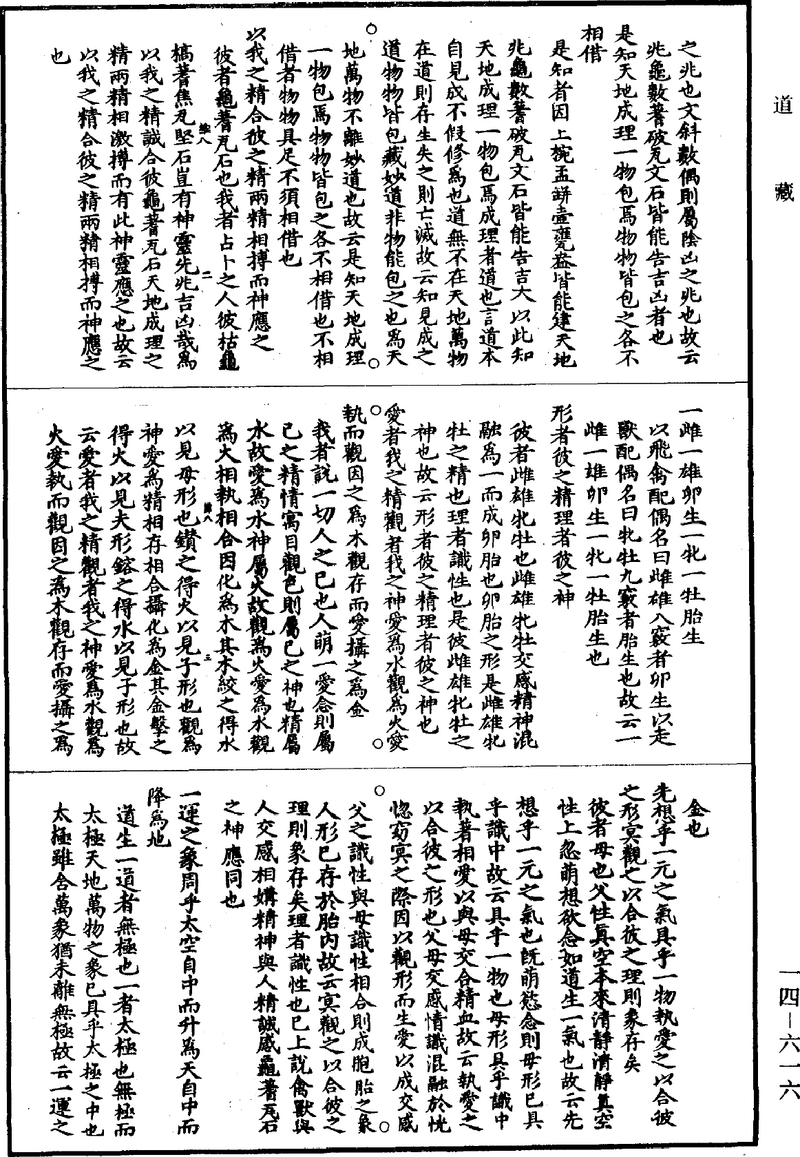 道藏
之兆也文斜數偶則屬陰凶之兆也故云
兆龜數蓍破瓦文石皆能告吉凶者也
是知天地成理一物包焉物物皆包之各不
相借
是知者因上椀盂缾壺甕盎皆能建天地
兆龜數蓍破瓦文石皆能告吉大以此知
天地成理一物包焉成理者道也言道本
自見成不假修爲也道無不在天地萬物
在道則存生失之則亡滅故云知見成之
道物物皆包藏妙道非物能包之也爲天
地萬物不離妙道也故云是知天地成理
一物包焉物物皆包之各不相借也不相
借者物物具足不須相借也
以我之精合彼之精兩精相摶而神應之
彼者龜蓍瓦石也我者占卜之人彼枯龜
槁蓍焦瓦堅石豈有神靈先兆吉凶哉爲
以我之精誠合彼龜蓍瓦石天地成理之
精兩精相激摶而有此神靈應之也故云
以我之精合彼之精兩精相摶而神應之
也
一雌一雄卵生一牝一牡胎生
以飛禽配偶名曰雌雄八竅者卵生以走
獸配偶名曰牝牡九竅者胎生也故云一
雌一雄卵生一牝一牡胎生也
形者彼之精理者彼之神
彼者雌雄牝牡也雌雄牝牡交感精神混
融爲一而成卵胎也卵胎之形是雌雄牝
牡之精也理者識性也是彼雌雄牝牡之
神也故云形者彼之精理者彼之神也
愛者我之精觀者我之神愛爲水觀爲火愛
執而觀因之爲木觀存而愛攝之爲金
我者說一切人之己也人萌一愛念則屬
己之精情寓目觀色則屬己之神也精屬
水故愛爲水神屬火故觀爲火愛爲水觀
爲火相執相合因化爲木其木絞之得水
以見母形也鑽之得火以見子形也觀爲
神愛爲精相存相合攝化爲金其金擊之
得火以見夫形鎔之得水以見子形也故
云愛者我之精觀者我之神愛爲水觀爲
火愛執而觀因之爲木觀存而愛攝之爲
金也
先想乎一元之氣具乎一物執愛之以合彼
之形冥觀之以合彼之理則象存矣
彼者母也父性真空本來清靜清靜真空
性上忽萌想欲念如道生一氣也故云先
想乎一元之氣也既萌慾念則母形已具
乎識中故云具乎一物也母形具乎識中
執著相愛以與母交合精血故云執愛之
以合彼之形也父母交感情識混融於恍
惚窈冥之際因以觀形而生愛以成交感
父之識性與母識性相合則成胞胎之象
人形已存於胎內故云冥觀之以合彼之
理則象存矣理者識性也已上說禽獸與
人交感相媾精神與人精誠感龜蓍瓦石
之神應同也
一運之象周乎太空自中而升爲天自中而
降爲地
道生一道者無極也一者太極也無極而
太極天地萬物之象已具乎太極之中也
太極雖含萬象猶未離無極故云一運之
一四－六一六